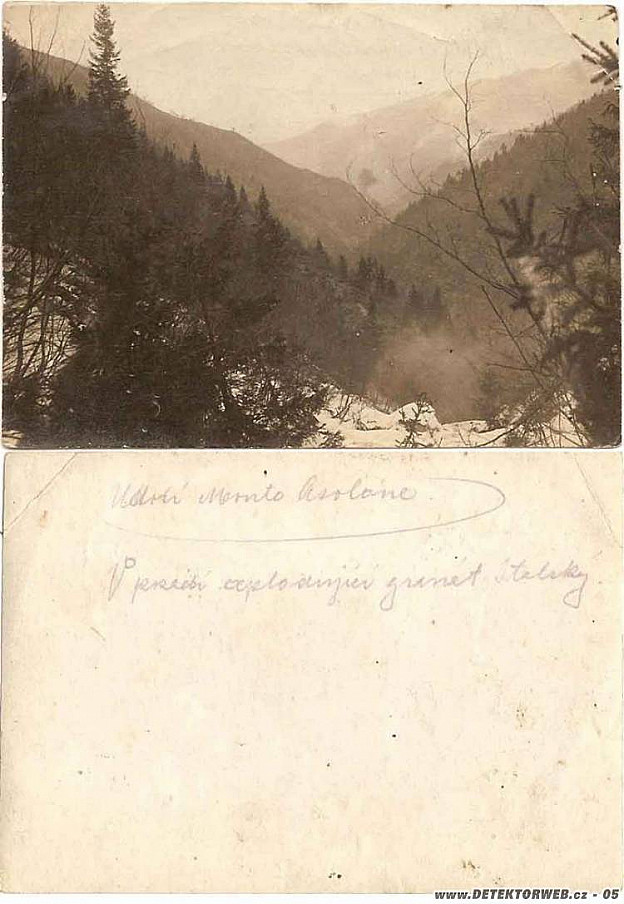 Údolí Monte Asolone.
V pozadí explodující granát italský.
www.DETEKTORWEB.cz - 05